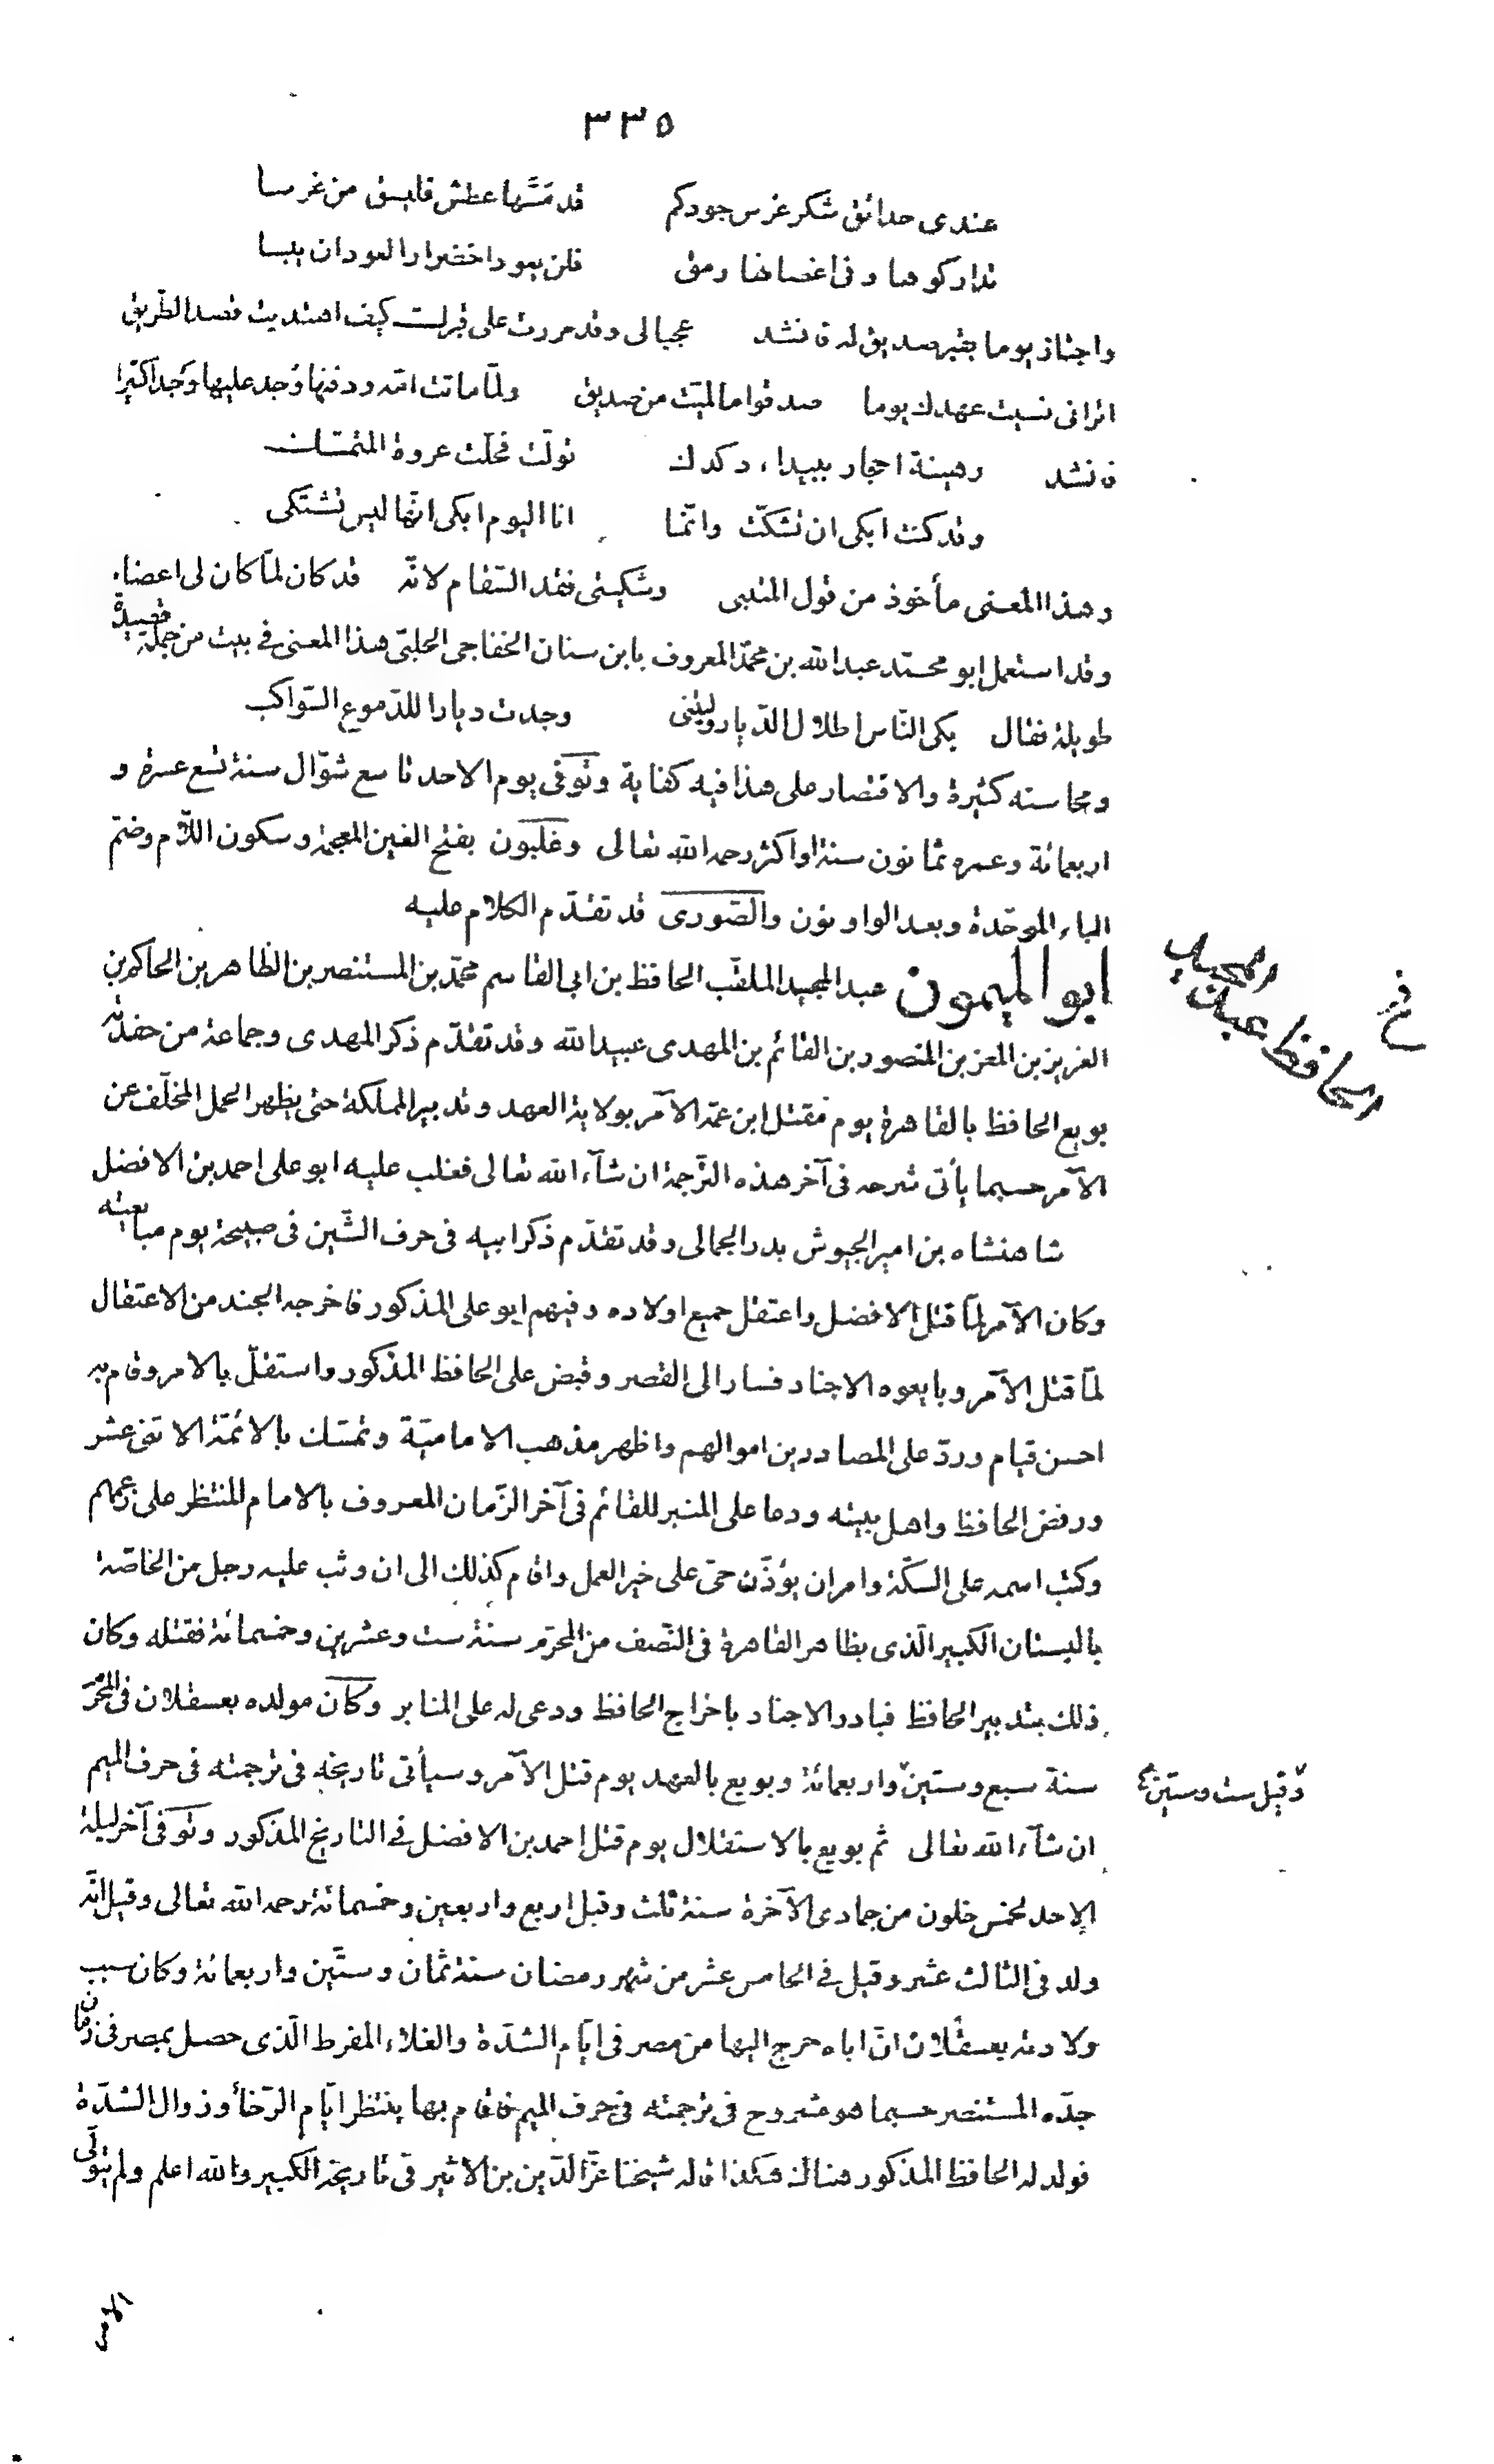 ٣٣٥
عندى حدائق شكر غرس جودكم قد مسّها عطش فليسق من غرسا
تداركوها وفى اغصانها رمق فلن يعود اخضرار العود ان يبسا
واجتاز يوما بقبر صديق له فانشد عجبا لى وقد مررت على قبرك كيف اهتديت قصد الطّريق
اترانى نسيت عهدك يوما صدقوا ما لميّت من صديق ولمّا ماتت امّه ودفنها وُجد عليها وَجدا كثيرا
فانشد رهينة احجار ببيداء دكدك تولّت فحلّت عروة المتمسّك
وقد كنت ابكى ان تشكّت وانّما انا اليوم ابكى انّها ليس تشتكى
وهذا المعنى مأخوذ من قول المتنبى وشكيتى فقد السّقام لانّه قد كان لمّا كان لى اعضاء
وقد استعمل ابو محمّد عبد الله بن محمّد المعروف بابن سنان الخفاجى الحلبىّ هذا المعنى فى بيت من جملة قصيدة
طويلة فقال بكى النّاس اطلال الدّيار وليتنى وجدت ديارا للدّموع السّواكب
ومحاسنه كثيرة والاقتصار على هذا فيه كفاية وتوفى يوم الاحد تاسع شوّال سنة تسع عشرة و
اربعمائة وعمره ثمانون سنة او اكثر رحمه الله تعالى وغلبون بفتح الغين المعجمة وسكون اللّام وضمّ
الباء الموحّدة وبعد الواو نون والصّورى قد تقدّم الكلام عليه
ابو الميمون عبد المجيد الملقّب الحافظ بن ابى القاسم محمّد بن المستنصر بن الظاهر بن الحاكم بن
الحافظ عبد المجيد
العزيز بن المعز بن المنصور بن القائم بن المهدى عبيد الله وقد تقدّم ذكر المهدى وجماعة من حفدته
بويع الحافظ بالقاهرة يوم مقتل ابن عمّه الآمر بولاية العهد وتدبير المملكة حتى يظهر الحمل المخلّف عن
الآمر حسبما يأتى شرحه فى آخر هذه الترّجمة ان شآء الله تعالى فغلب عليه ابو على احمد بن الافضل
شاهنشاه بن امير الجيوش بدر الجمالى وقد تقدّم ذكر ابيه فى حرف الشّين فى صبيحة يوم مبايعته
وكان الآمر لمّا قتل الافضل واعتقل جميع اولاده وفيهم ابو على المذكور فاخرجه الجند من الاعتقال
لمّا قتل الآمر وبايعوه الاجناد فسار الى القصر وقبض على الحافظ المذكور واستقلّ بالامر وقام به
احسن قيام وردّ على المصادرين اموالهم واظهر مذهب الاماميّة وتمسّك بالائمّة الاثنى عشر
ورفض الحافظ واهل بيته ودعا على المنبر للقائم فى آخر الزّمان المعروف بالامام المنتظر على زعمهم
وكتب اسمه على السكّة وامر ان يؤذّن حىّ على خير العمل واقام كذلك الى ان وثب عليه رجل من الخاصّة
بالبستان الكبير الّذى بظاهر القاهرة فى النّصف من المحرّم سنة ست وعشرين وخمسمائة فقتله وكان
ذلك بتدبير الحافظ فبادر الاجناد باخراج الحافظ ودعى له على المنابر وكان مولده بعسقلان فى المحرّم
سنة سبع وستين واربعمائة وبويع بالعهد يوم قتل الآمر وسيأتى تاريخه فى ترجمته فى حرف الميم
وقيل ست وستين
ان شآء الله تعالى ثم بويع بالاستقلال يوم قتل احمد بن الافضل فى التاريخ المذكور وتوفى آخر ليلة
الاحد لخمس خلون من جمادى الآخرة سنة ثلث وقيل اربع واربعين وخمسمائة رحمه الله تعالى وقيل انّه
ولد فى الثالث عشر وقيل فى الخامس عشر من شهر رمضان سنة ثمان وستّين واربعمائة وكان سبب
ولادته بعسقلان انّ اباه خرج اليها من مصر فى ايّام الشدّة والغلاء المفرط الّذى حصل بمصر فى زمان
جدّه المستنصر حسبما هو مشروح فى ترجمته فى حرف الميم فاقام بها ينتظر ايّام الرّخأ وزوال الشدّة
فولد له الحافظ المذكور هناك هكذا قاله شيخنا عزّ الدّين بن الاثير فى تاريخه الكبير والله اعلم ولم يتولّى
الامر